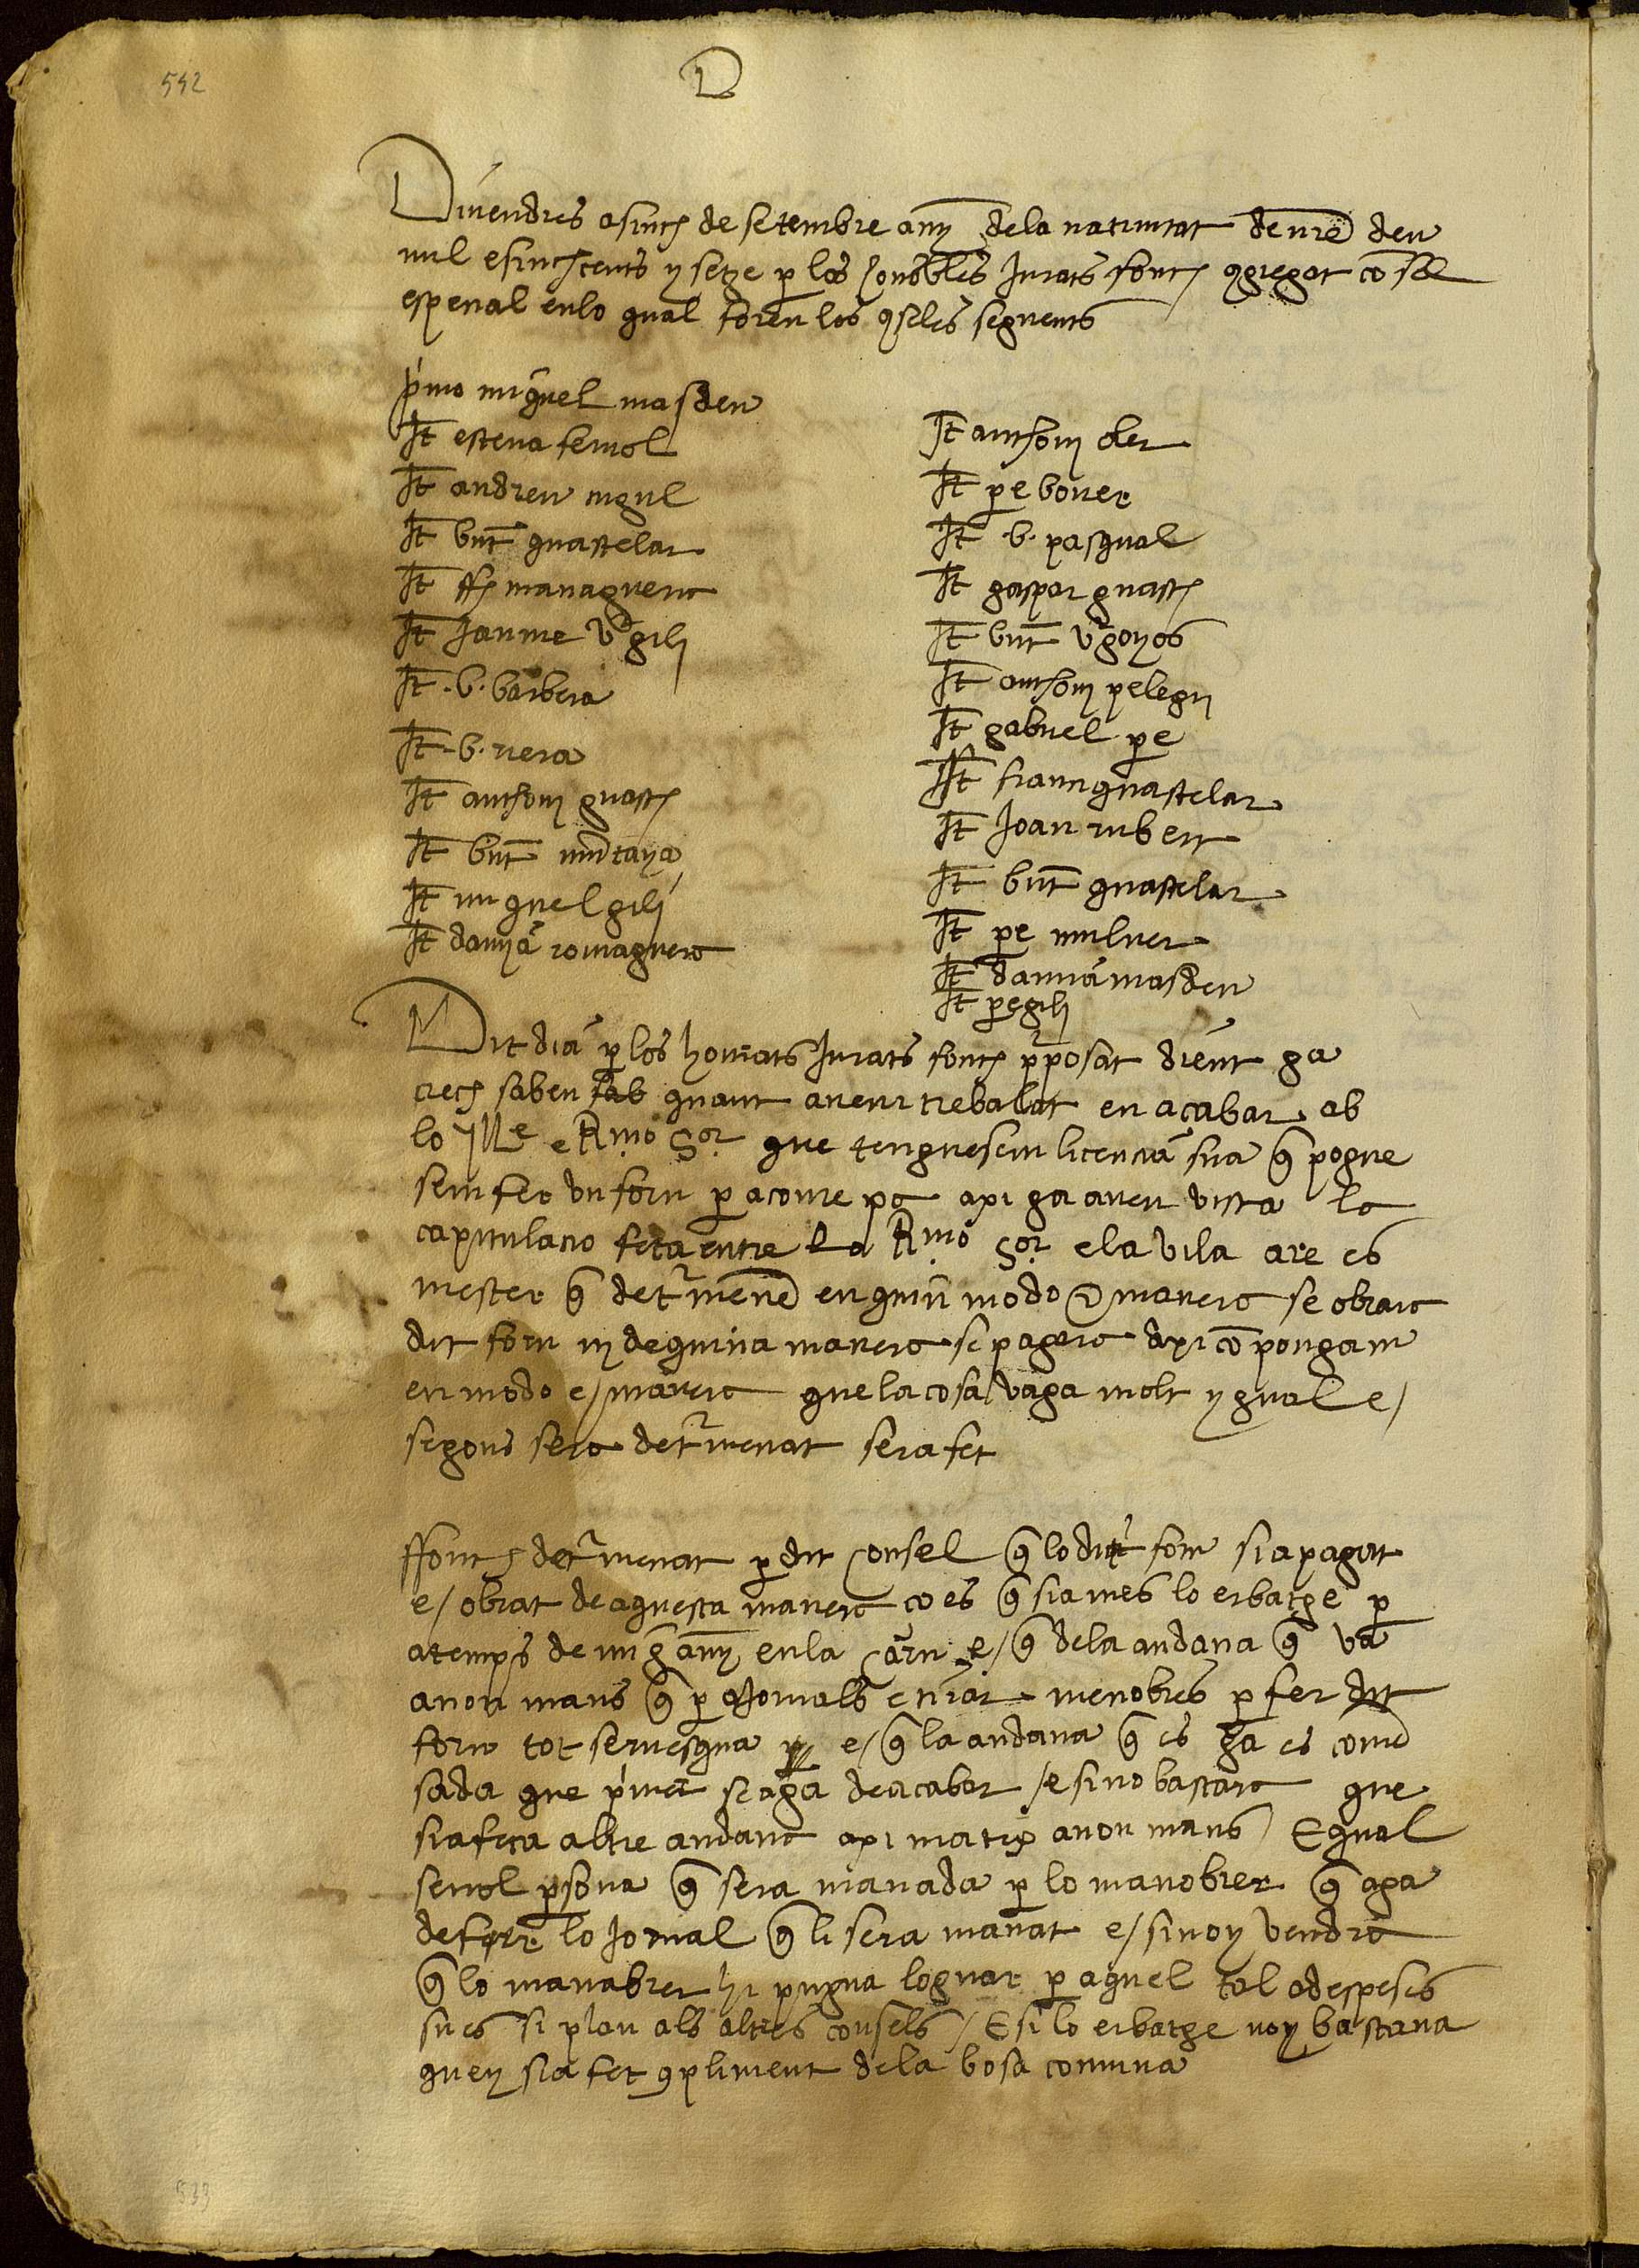 542
D
Divendres a sinch de setembre any de la nativitat de nre deu
mil e sinch cents y setze p los honobles Jurats fonch ɔgregat cosel
especial en lo qual foren los ɔseles seguents
pmo miquel masdeu
It esteva femol
It andreu mgul
It bnt guastelar
It ff managuerre
It Jaume vgili
It .b. barbera
It .b. riera
It anthoni guasch
It bnt mutaya
It miquel gili
It damya romaguera
It anthoni oler
It pe bover
It .b. pasqual
It gaspar guasch
It bnt vgoyos
It anthoni pelegri
It gabriel pe
It franci guastelar
It Joan rubert
It bnt guastelar
It pe muluer
It damia masdeu
It pe gili
Dit dia p los honrats Jurats fonch pposat dient ga
crech saben fab quant avem trebalat en acabar ab
lo Ille e Rmo Sor que tenguesem licencia sua q pogue
sem fer un forn p a coure pa axi ga aveu vista la
capitulacio feta entre lo Rmo Sor e la vila are es
mester q detmene en quin modo e manera se obrara
dit forn ni de quina manera se pagara axi co pongam
en modo e/ manera que la cosa vaga molt ygual e/
segons sera detmenat sera fet
ffonch detmenat p dit consel q lo dit forn sia pagat
e/ obrat de aquesta manera co es q sia mes lo erbatge p
a temps de mig any en la carn e/ q de la andana q va
a non mans q p jornals e tirar menobres p fer dit
forn tot servesqua e/ q la andana q es ga es comē
sada que pmer se aga de acabar / e si no bastara que
sia feta altre andana axi matex a non mans / E qual
sevol psona q sera manada p lo manobrer q aga
de ferr lo Jornal q li sera manat e/ si noy vendra
q lo manabrer hi pugua loguar p aquel tal a despeses
sues si plau als altres consels / E si lo erbatge noy bastava
quey sia fet ɔpliment de la bosa comuna
533